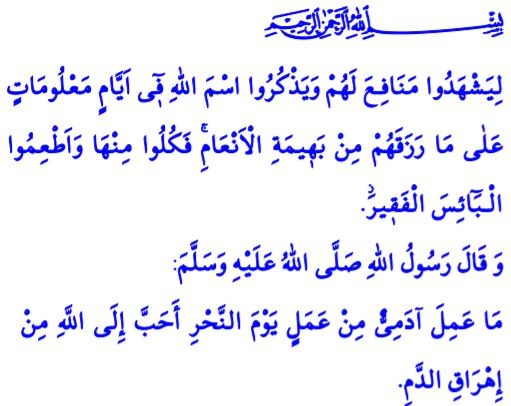 بِسْمِ اللهِ الرَّحْمٰنِ الرَّحِيمِ
لِيَشْهَدُوا مَنَافِعَ لَهُمْ وَيَذْكُرُوا اسْمَ اللهِ فٖٓى اَيَّامٍ مَعْلُومَاتٍ
عَلٰى مَا رَزَقَهُمْ مِنْ بَهٖيمَةِ الْاَنْعَامِۚ فَكُلُوا مِنْهَا وَاَطْعِمُوا
الْبَٓائِسَ الْفَقٖيرَۘ.
وَ قَالَ رَسُولُ اللهِ صَلَّى اللهُ عَلَيْهِ وَسَلَّمَ:
مَا عَمِلَ آدَمِيٌّ مِنْ عَمَلٍ يَوْمَ النَّحْرِ أَحَبَّ إِلَى اللَّهِ مِنْ
إِهْرَاقِ الدَّمِ.